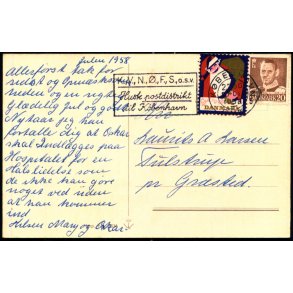 Julen 1958
Allerførst tak for
sidst og Ønskes
neden og en rigtig
glædelig jul og godt
Nytaar jeg kan
fortælle dig at Oskar
skal Indlægges paa
Hospitalet for en
Halslidelse som
de ikke kan gøre
noget ved uden
at han kommer
ind
Hilsen Mary og Oskar
V, N, Ø, F, S, o.s.v.
Husk postdistrikt
til København
DANMARK
20
Laurits A Larsen
Tulstrup
pr Græsted